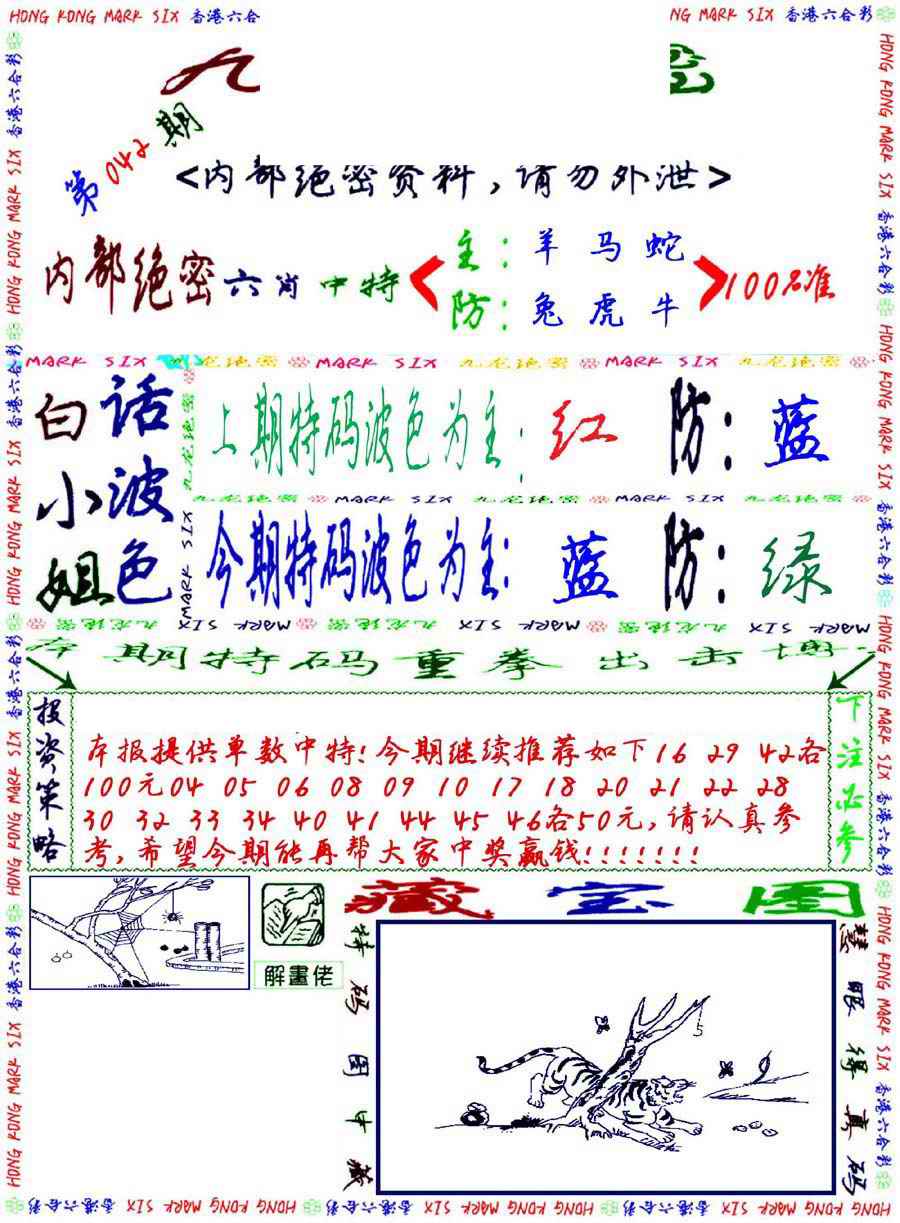 HONG KONG MARK SIX 香港六合
NG MARK SIX 香港六合彩
九
密
第042期
<内部绝密资料,请勿外泄>
内部绝密六肖中特
主:羊马蛇
防:兔虎牛
100%准
MARK SIX 九龙绝密 MARK SIX 九龙绝密 MARK SIX 九龙绝密
白话
小波
姐色
上期特码波色为主:红 防:蓝
九龙绝密 MARK SIX 九龙绝密 MARK SIX 九龙绝密
今期特码波色为主:蓝 防:绿
九龙绝密 MARK SIX 九龙绝密 MARK SIX 九龙绝密 MARK SIX
本期特码重拳出击博
投资策略
本报提供单数中特!今期继续推荐如下16 29 42各
100元04 05 06 08 09 10 17 18 20 21 22 28
30 32 33 34 40 41 44 45 46各50元,请认真参
考,希望今期能再帮大家中奖赢钱!!!!!!!
下注必参
藏宝图
解畫佬
特码图中藏
慧眼得真码
5
HONG KONG MARK SIX 香港六合彩